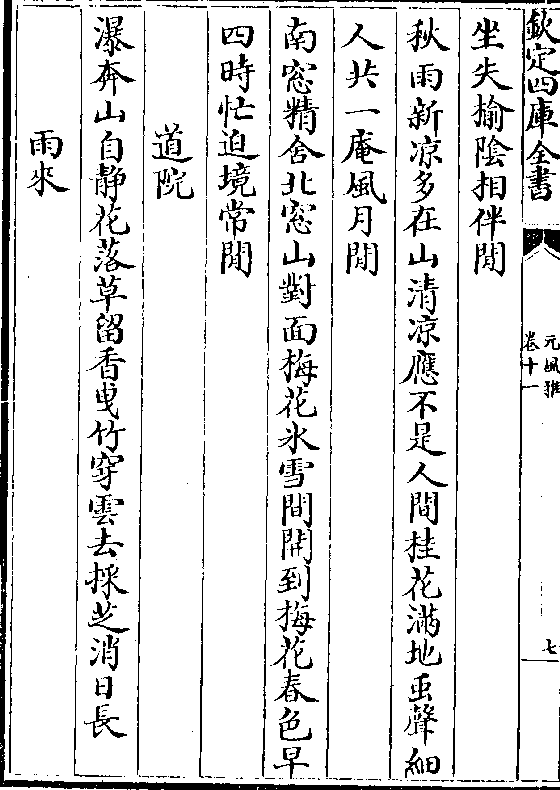 欽定四庫全書
元風雅
卷十一
七
坐失揄陰相伴閒
秋雨新凉多在山清凉應不是人間桂花滿地虫聲細
人共一庵風月閒
南窓精舍北窓山對面梅花氷雪間開到梅花春色早
四時忙迫境常閒
道院
瀑奔山自静花落草留香曵竹穿雲去採芝消日長
雨來